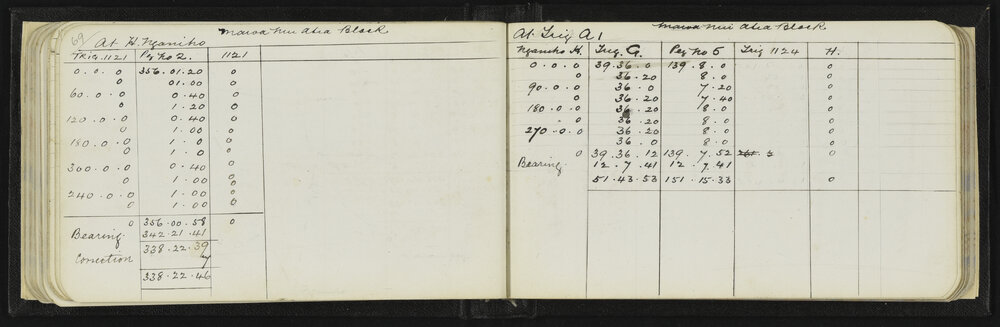 69
Maraa Nui Atea Block
At H. Nganiho
Trig. 1121 Peg No 2. 1121
0 . 0 . 0 356.01.20 0
0 01.00 0
60 . 0 . 0 0.40 0
0 1.20 0
120 . 0 . 0 0.40 0
0 1.00 0
180 . 0 . 0 1.0 0
0 1.0 0
300 . 0 . 0 0.40 0
0 1.00 0
240 . 0 . 0 1.00 0
0 1.00 0
0 356.00.58 0
Bearing 342.21.41
338.22.39
Correction 7
338.22.46
Maraa Nui Atea Block
At Trig A1
Nganiho H. Trig. G. Peg No 5 Trig 1124 H.
0 . 0 . 0 39.36.0 139.8.0 0
0 36.20 8.0 0
90 . 0 . 0 36.0 7.20 0
0 36.20 7.40 0
180 . 0 . 0 36.20 8.0 0
0 36.20 8.0 0
270 . 0 . 0 36.20 8.0 0
36.0 8.0 0
0 39.36.12 139.7.52 0
Bearing 12.7.41 12.7.41
51.43.53 151.15.33 0